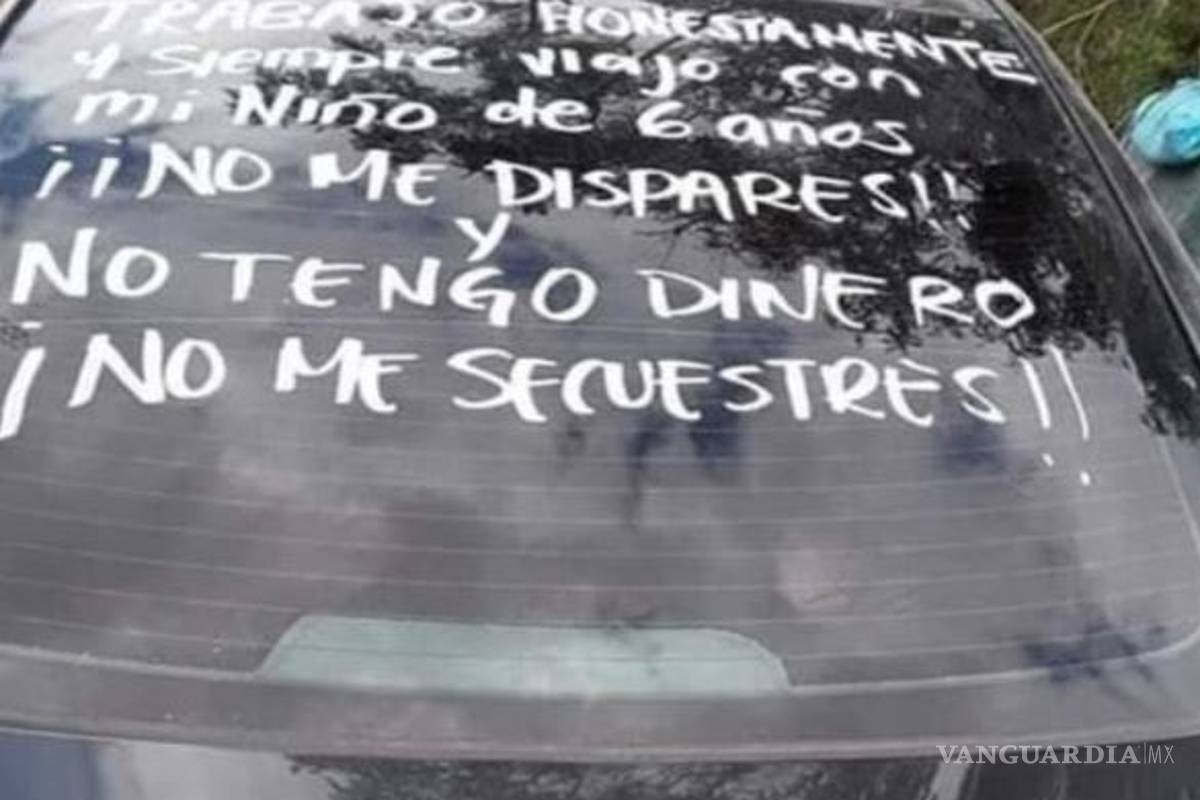 TRABAJO HONESTAMENTE
y siempre viajo con
mi NiÑo de 6 años
¡¡NO ME DISPARES!!
y
NO TENGO DINERO
¡NO ME SECUESTRES!!
VANGUARDIA|MX